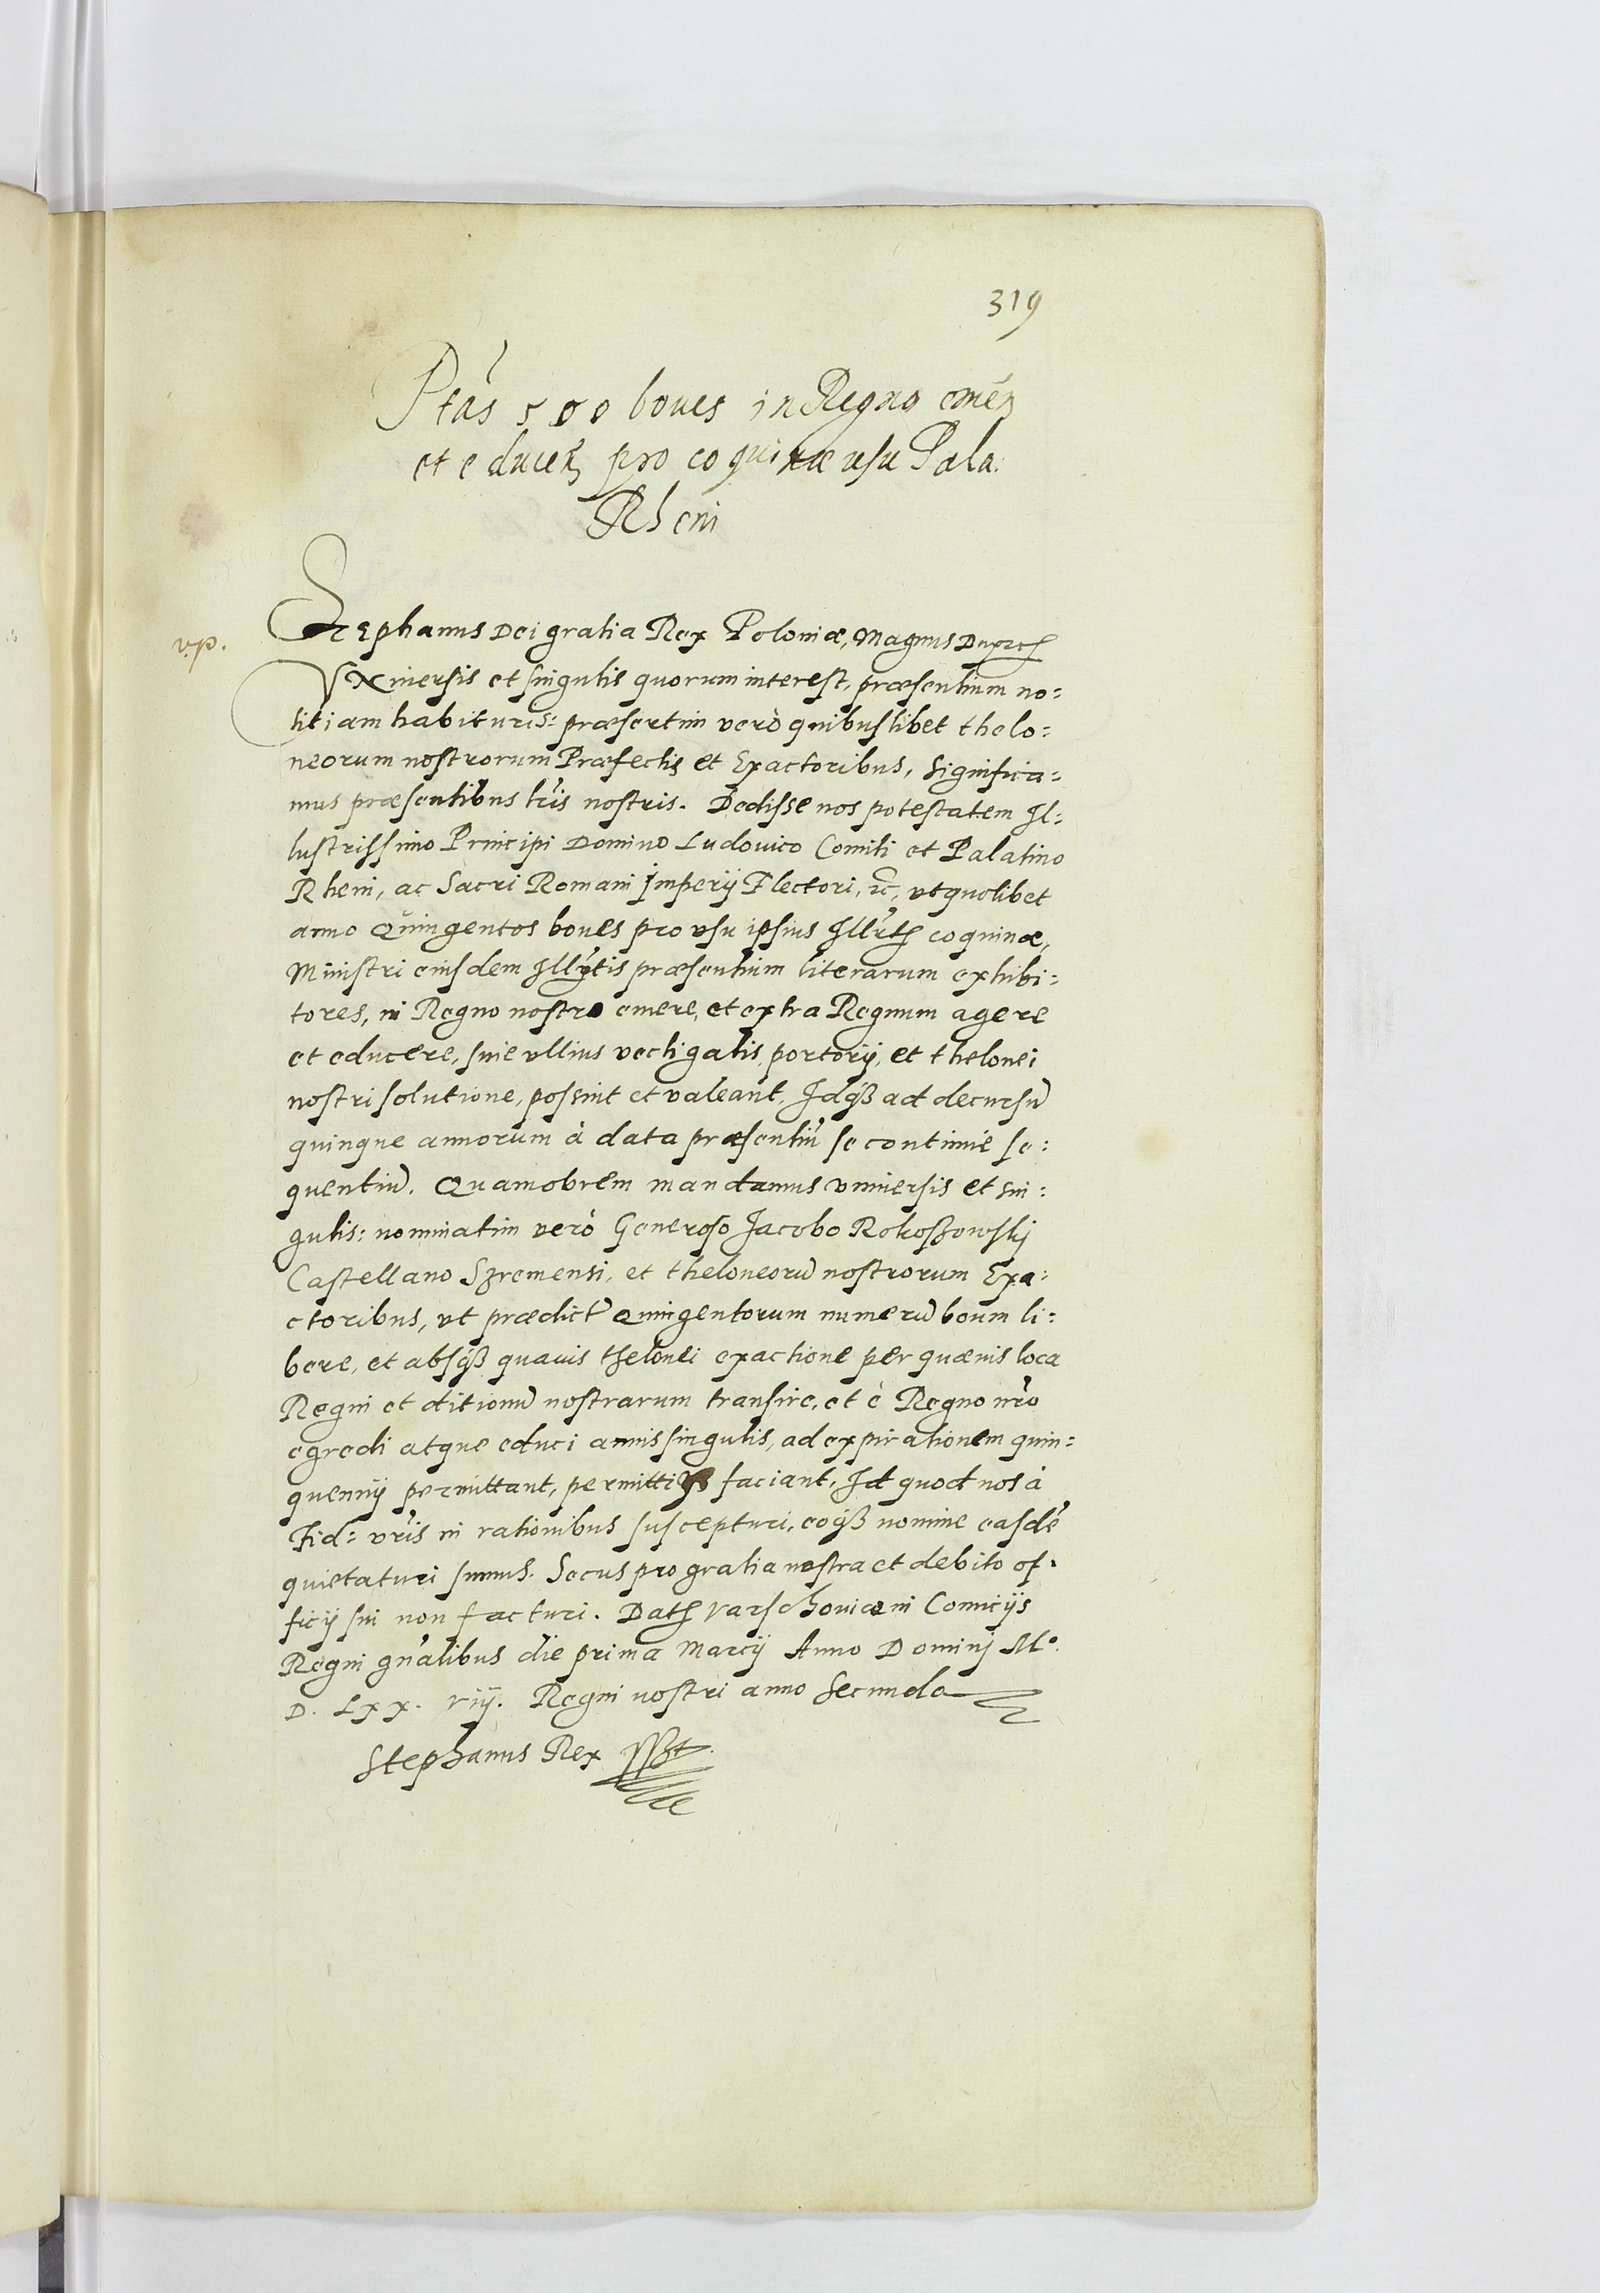 319
Ptãs 500 boues in Regno emeñ
et educeñ pro coquinæ usu Pala:
Rheni
v.p.
Stephanus Dei gratia Rex Poloniæ, Magnus Dux ꝛc
Vniuersis et singulis quorum interest, præsentium no:
titiam habituris: præsertim verò quibuslibet thelo:
neorum nostrorum Præfectis et Exactoribus, Significa:
mus præsentibus lr̃is nostris. Dedisse nos potestatem Il:
lustrissimo Principi Domino Ludouico Comiti et Palatino
Rheni, ac Sacri Romani Imperij Electori, ꝛc, vt quolibet
anno Quingentos boues pro vsu ipsius Illr̃tis coquinæ,
Ministri eiusdem Illr̃tis præsentium literarum exhibi:
tores, in Regno nostro emere, et extra Regnum agere
et educere, sine vllius vectigalis, portorij, et thelonei
nostri solutione, possint et valeant, Idqß ad decursũ
quinque annorum à data præsentiũ se continuè se:
quentiũ. Quamobrem mandamus vniuersis et sin:
gulis: nominatim verò Generoso Jacobo Rokoßowskj
Castellano Szremensi, et theloneorũ nostrorum Exa:
ctoribus, vt prædict̃ Quingentorum numerũ boum li:
bere, et absqß quauis thelonei exactione per quæuis loca
Regni et ditionũ nostrarum transire, et è Regno nr̃o
egredi atque educi annis singulis, ad expirationem quin:
quennij permittant, permittiqß faciant, Id quod nos à
Fid: vr̃is in rationibus suscepturi, eoqß nomine easdẽ
quietaturi sumus. Secus pro gratia nostra et debito of:
ficij sui non facturi. Datꝭ Varschouiæ in Comicijs
Regni gñalibus die prima Marcij Anno Dominj M°
D. Lxx. viij. Regni nostri anno Secundo
Stephanus Rex ßßt.